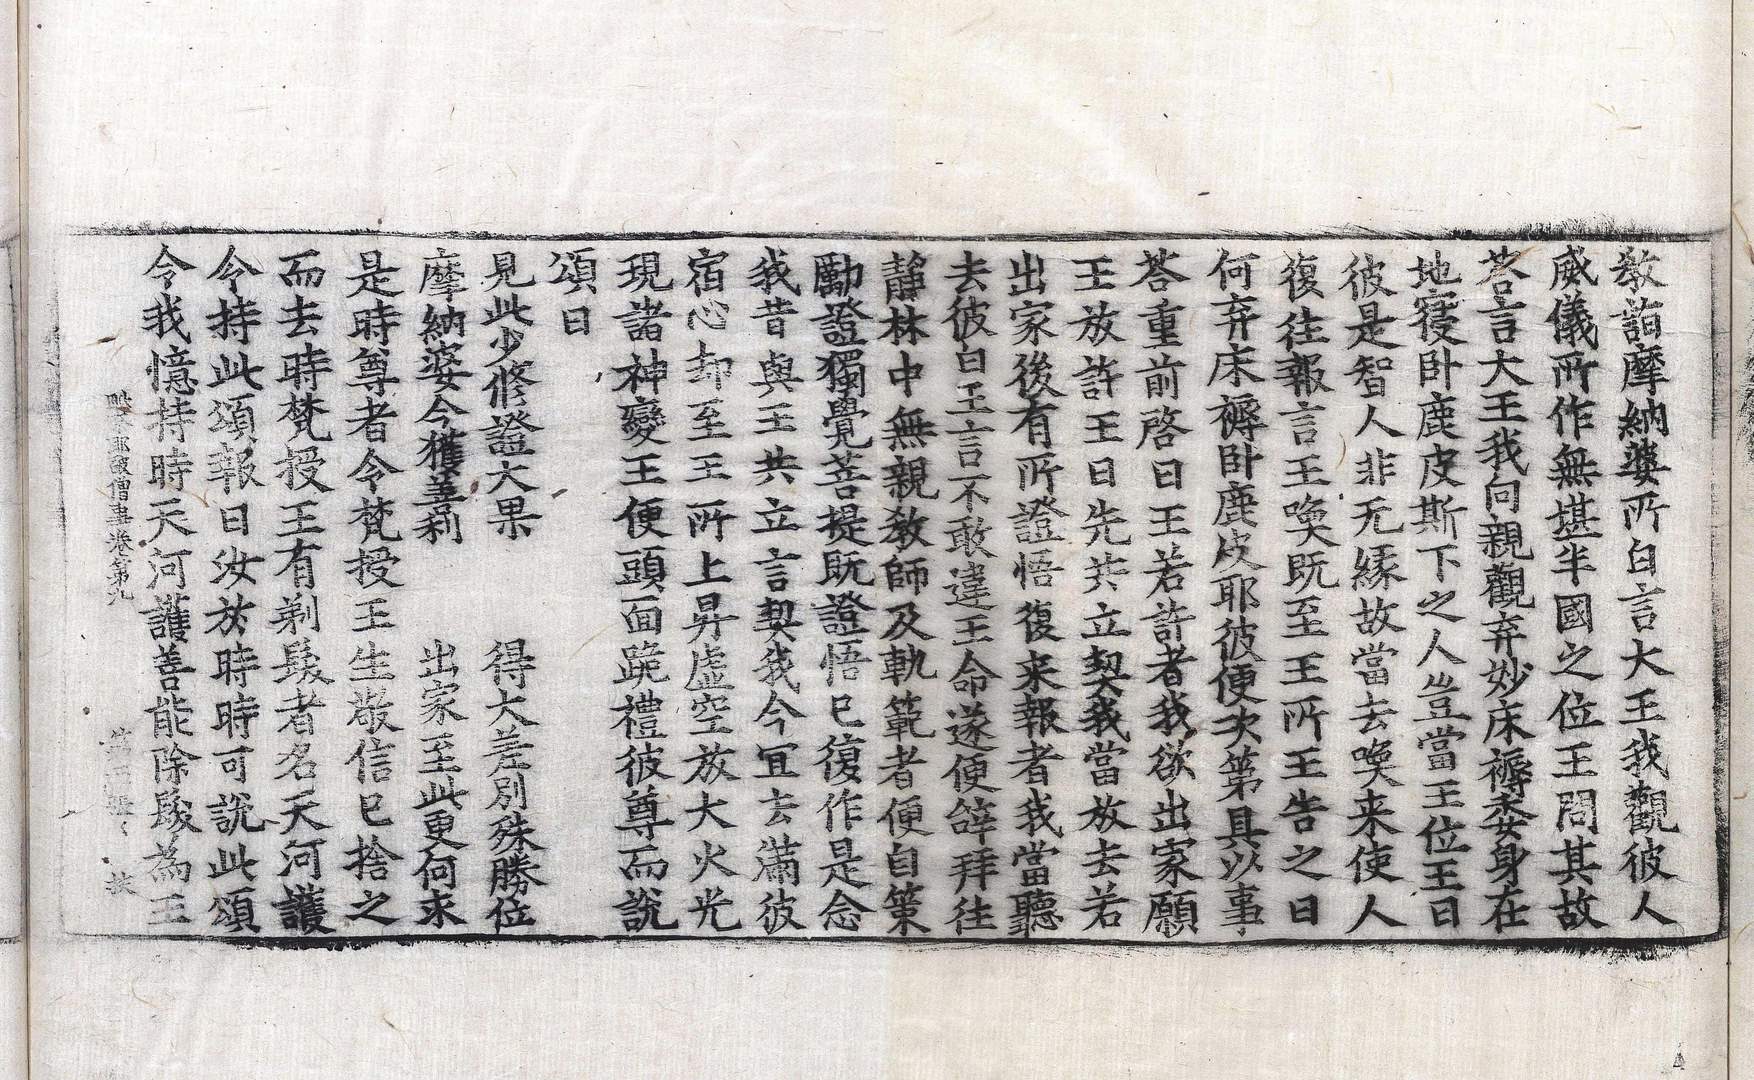 教詣摩納婆所白言大王我觀彼人
威儀所作無堪半國之位王問其故
荅言大王我向親觀弃妙床褥委身在
地寑卧鹿皮斯下之人豈當王位王曰
彼是智人非无緣故當去喚来使人
復往報言王喚既至王所王告之曰
何弃床褥卧鹿皮耶彼便次第具以事
荅重前啓曰王若許者我欲出家願
王放許王曰先共立契我當放去若
出家後有所證悟復来報者我當聽
去彼白王言不敢違王命遂便辞拜往
靜林中無親教師及軌範者便自策
勵證獨覺菩提既證悟已復作是念
我昔與王共立言契我今冝去滿彼
宿心却至王所上昇虛空放大火光
現諸神變王便頭面䟱禮彼尊而說
頌曰
見此少修證大果　得大差別殊勝位
摩納婆今獲善利　出家至此更何求
是時尊者令梵授王生敬信已捨之
而去時梵授王有剃髮者名天河護
令持此頌報曰汝於時時可說此頌
令我憶持時天河護善能除䰂為王
僧事卷第九